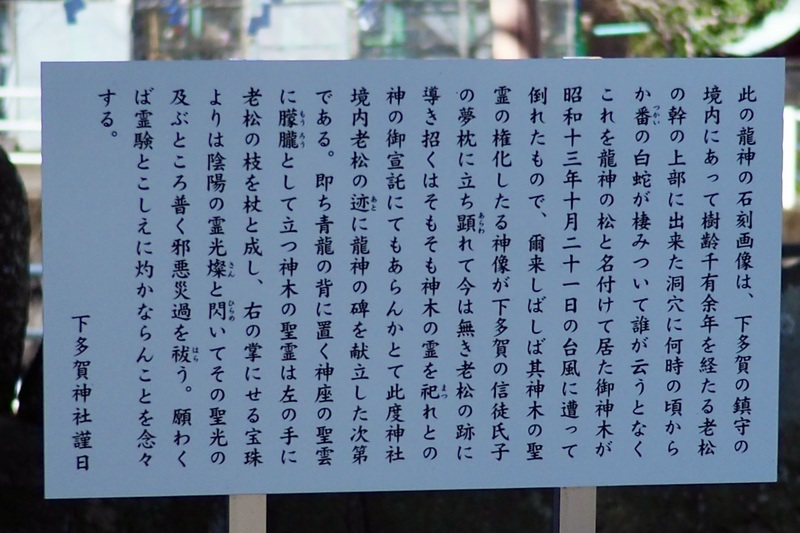 此の龍神の石刻画像は、下多賀の鎮守の
境内にあって樹齢千有余年を経たる老松
の幹の上部に出来た洞穴に何時の頃から
か番の白蛇が棲みついて誰が云うとなく
これを龍神の松と名付けて居た御神木が
昭和十三年十月二十一日の台風に遭って
倒れたもので、爾来しばしば其神木の聖
霊の権化したる神像が下多賀の信徒氏子
の夢枕に立ち顕れて今は無き老松の跡に
導き招くはそもそも神木の霊を祀れとの
神の御宣託にてもあらんかとて此度神社
境内老松の迹に龍神の碑を献立した次第
である。即ち青龍の背に置く神座の聖雲
に朦朧として立つ神木の聖霊は左の手に
老松の枝を杖と成し、右の掌にせる宝珠
よりは陰陽の霊光燦と閃いてその聖光の
及ぶところ普く邪悪災過を祓う。願わく
ば霊験とこしえに灼かならんことを念々
する。
下多賀神社謹日